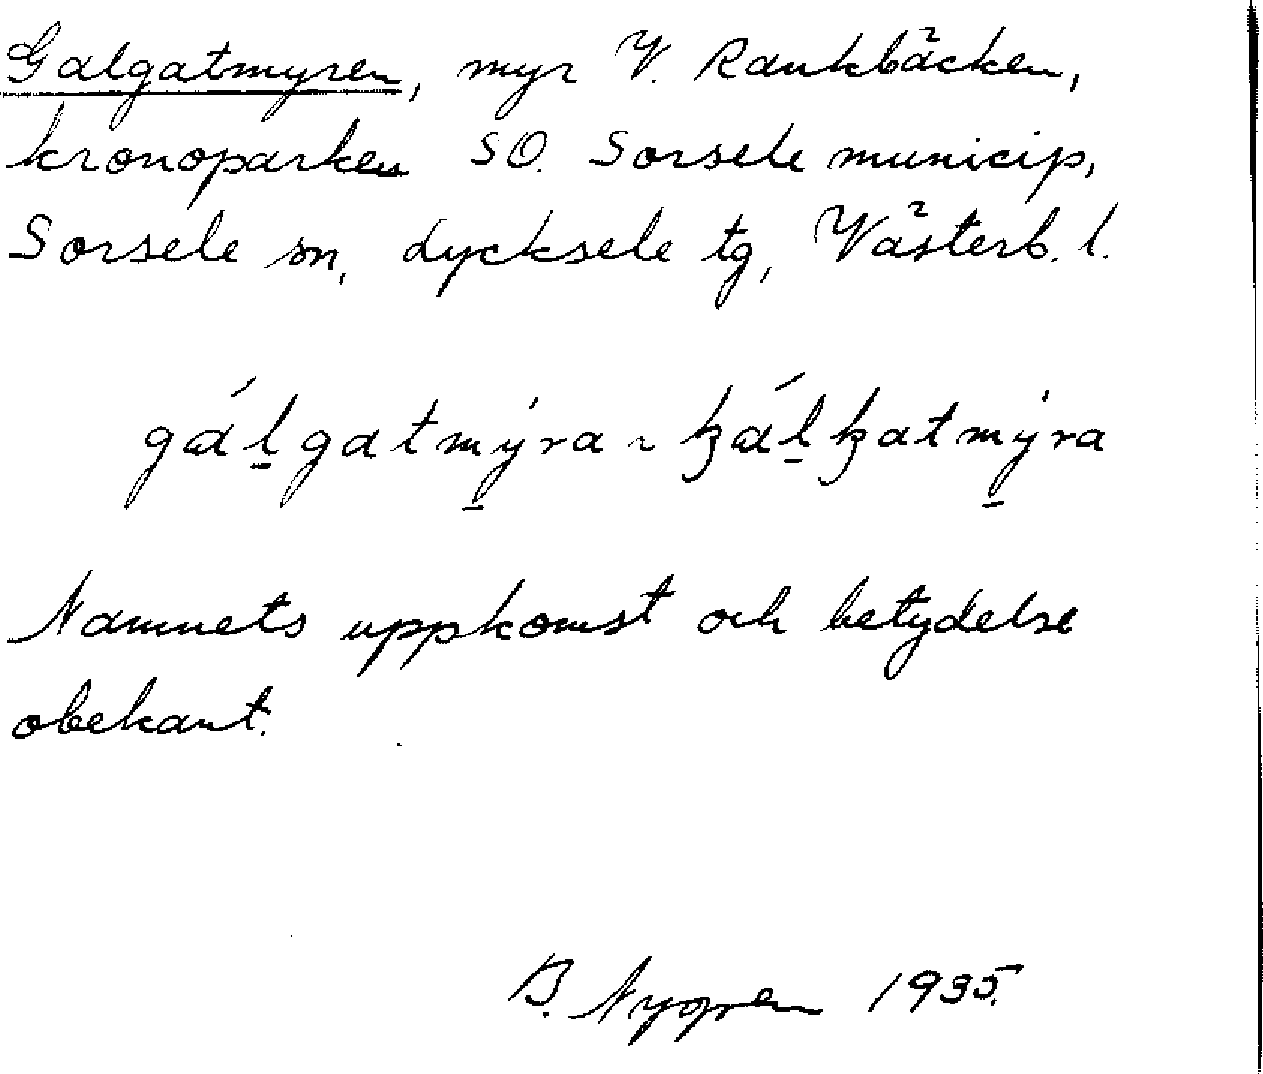 Galgatmyren, myr V. Raukbäcken,
kronoparken SO. Sorsele municip,
Sorsele sn, Lycksele tg, Västerb. l.
gál̠gatm̠ýra ~ ꜧál̠ꜧatm̠ýra
Namnets uppkomst och betydelse
obekant.
B. Nygren 1935.